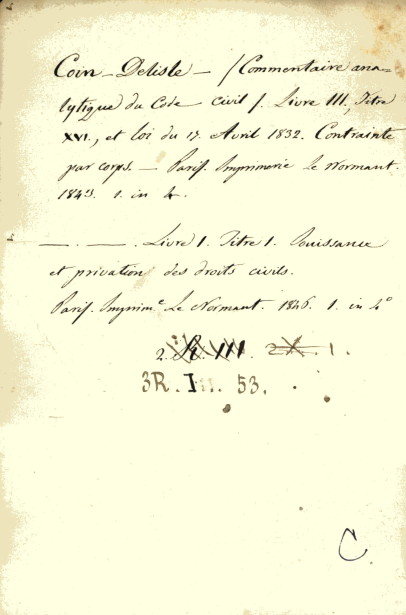 Coin-Delisle - (Commentaire ana-
lytique du Code civil). Livre III, Titre
XVI, et loi du 17 Avril 1832. Contrainte
par corps. — Paris. Imprimerie Le Normant.
1843. 1. in 4.
— . — . Livre 1. Titre 1. Jouissance
et privation des droits civils.
Paris. Imprim.e Le Normant. 1846. 1. in 4°
2. III. 1.
3R. III. 53.
C